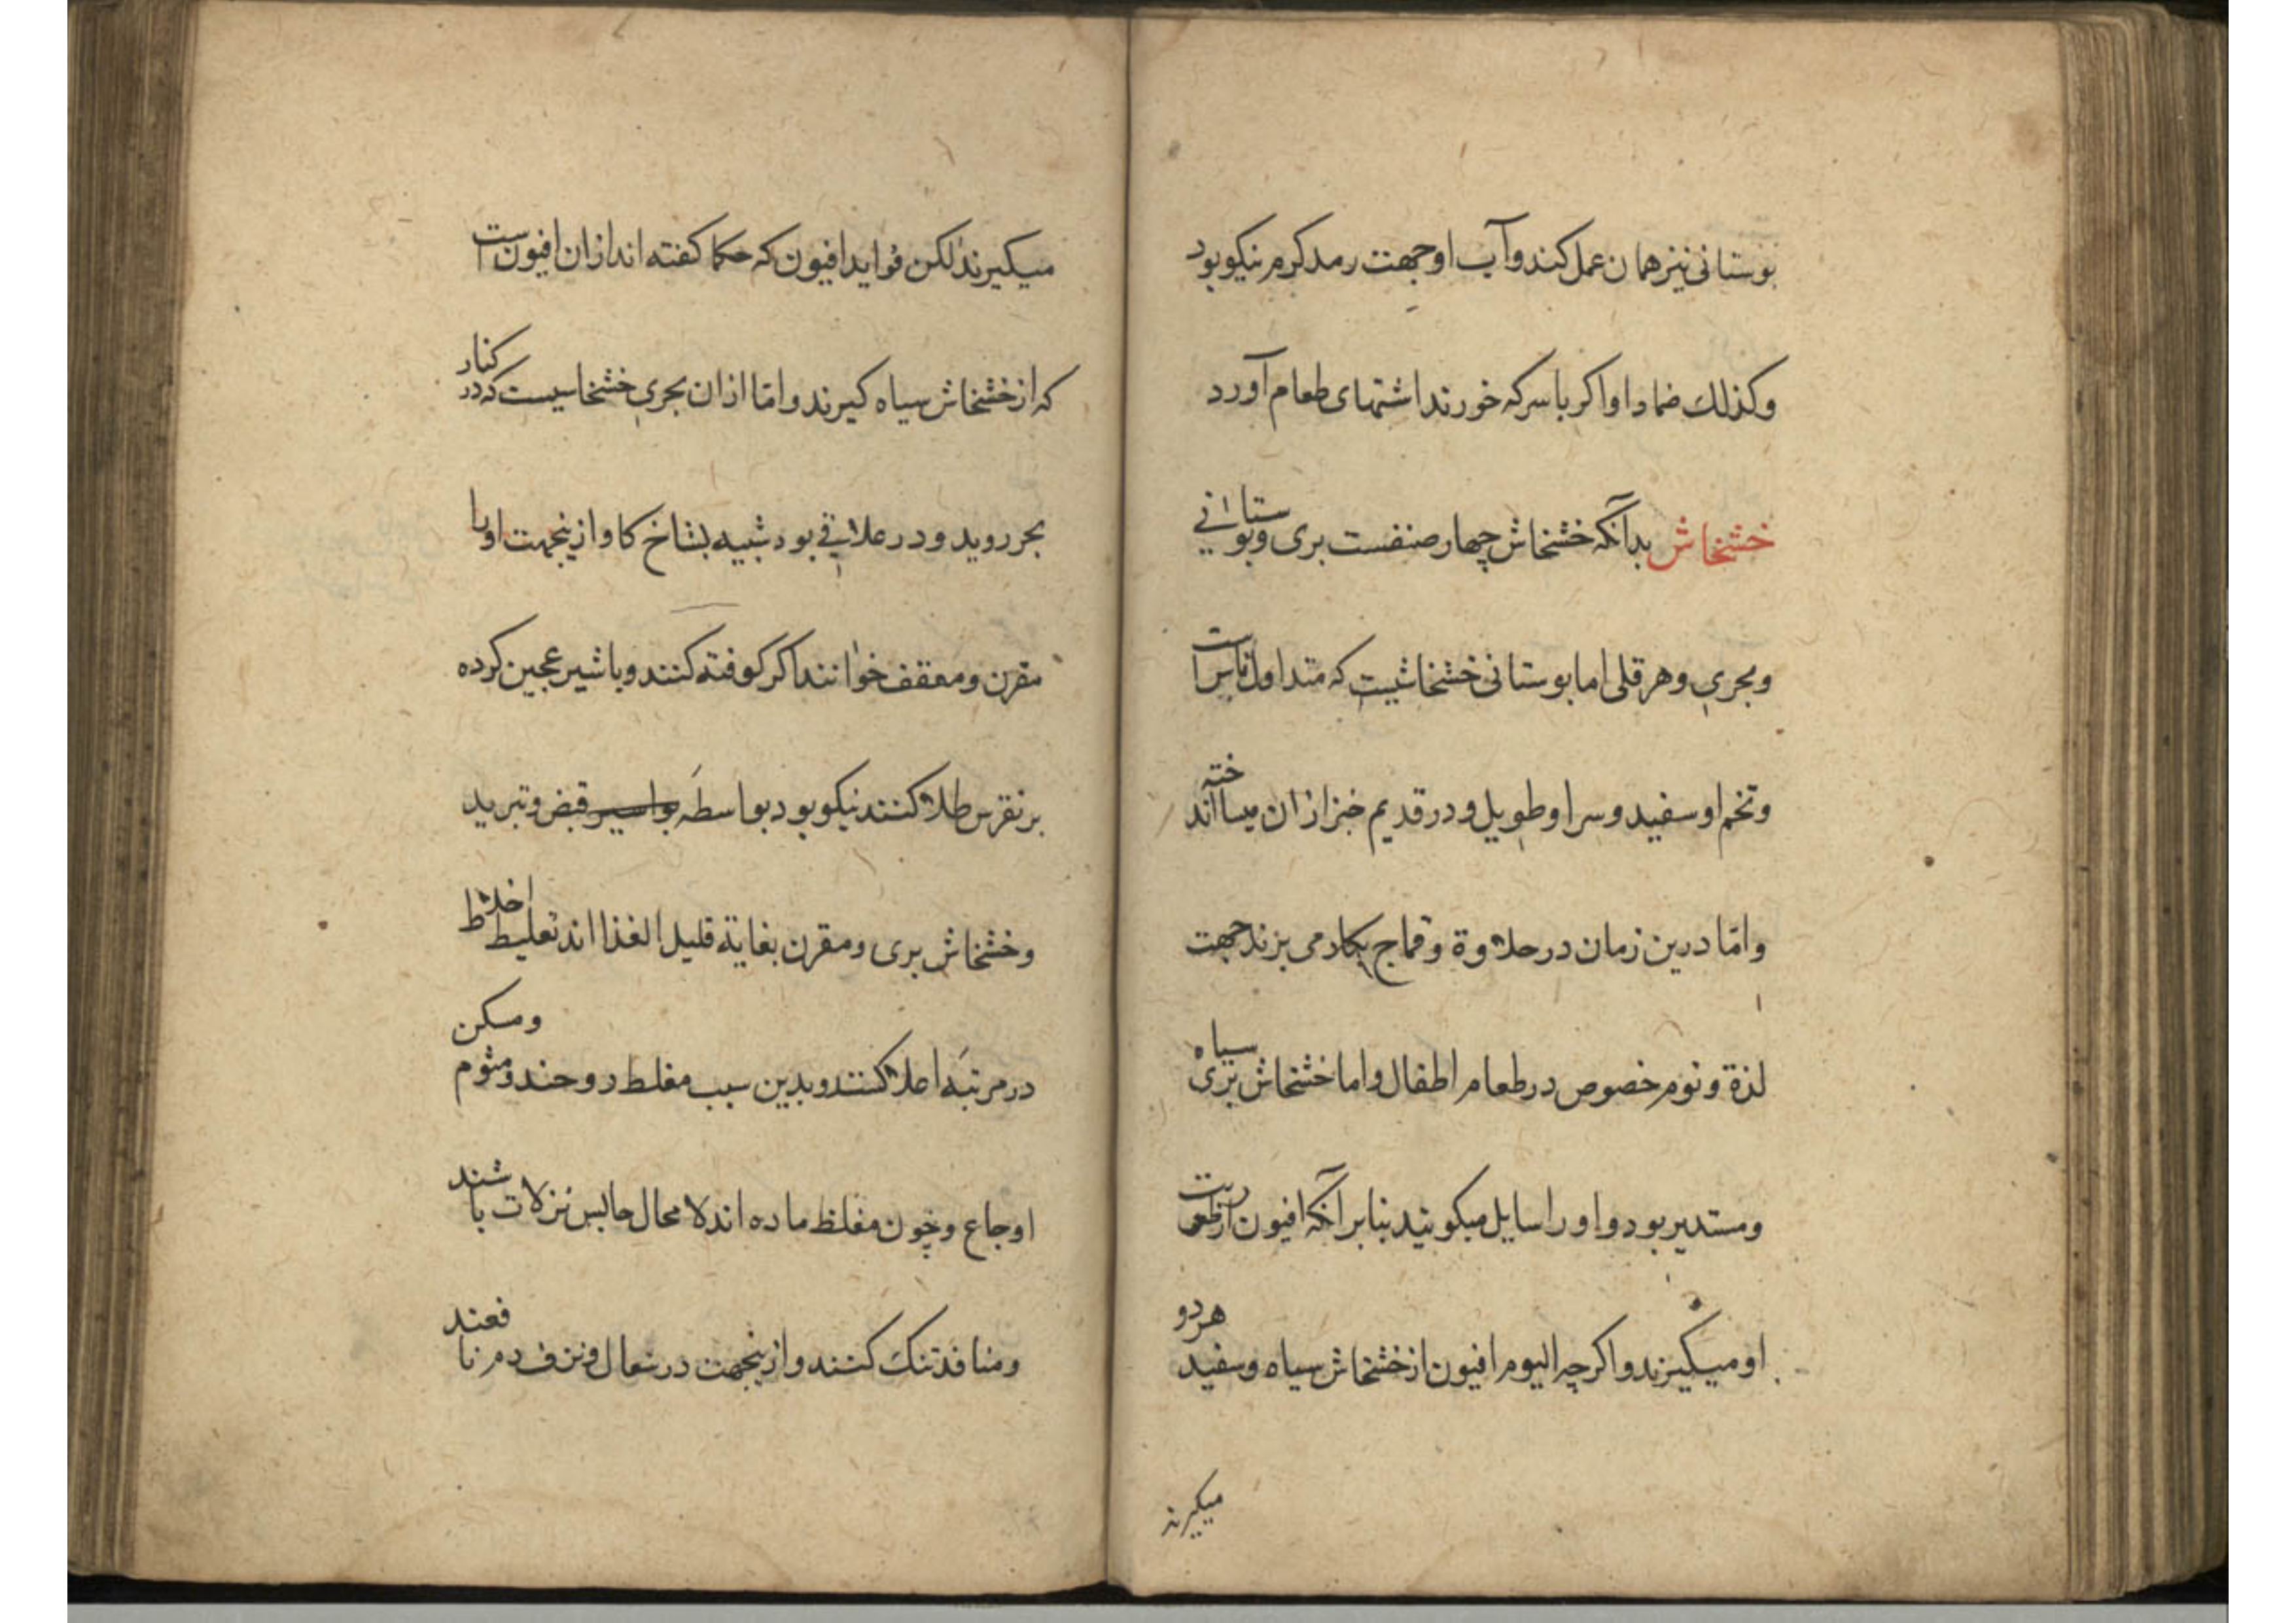 بوستانی نیز همان عمل کند و آب او جهت رمد کرم نیکو بود
وکذلك ضماد او اکر با سرکه خورند اشتهای طعام آورد
خشخاش بدآنکه خشخاش چهار صنفست بری و بوستانی
وبحری وهرقلی اما بوستانی خشخاشیست که متداول ناس است
وتخم او سفید وسر او طویل و در قدیم خبز ازان میساخته اند
وامّا درین زمان در حلاوة وقماج بکار می برند جهت
لذة ونوم خصوص در طعام اطفال واما خشخاش برّی سیاه
ومستدیر بود واورا سایل میکویند بنابر آنکه افیون از رطوبت
او میکیرند واکرچه الیوم افیون از خشخاش سیاه وسفید هردو
میکیرند
میکیرند لکن فواید افیون که حکما کفته اند ازان افیون است
که از خشخاش سیاه کیرند وامّا ازان بحری خشخاسیست که در کنار
بحر روید ودر علافی بود شبیه بشاخ کاو ازینجهت اورا
مقرن ومعقف خوانند اکر کوفته کنند وباشیر عجین کرده
بر نقرس طلا کنند نیکو بود بواسطهَ بواسیر قبض وتبرید
وخشخاش بری ومقرن بغایة قلیل الغذا اند تغلیط اخلاط
در مرتبهَ اعلا کنند وبدین سبب مغلط روحند ومنوم ومسکن
اوجاع وچون مغلظ ماده اند لامحال حابس نزلات باشند
ومنافذ تنك کنند وازینجهت در سعال ونزف دم نافعند